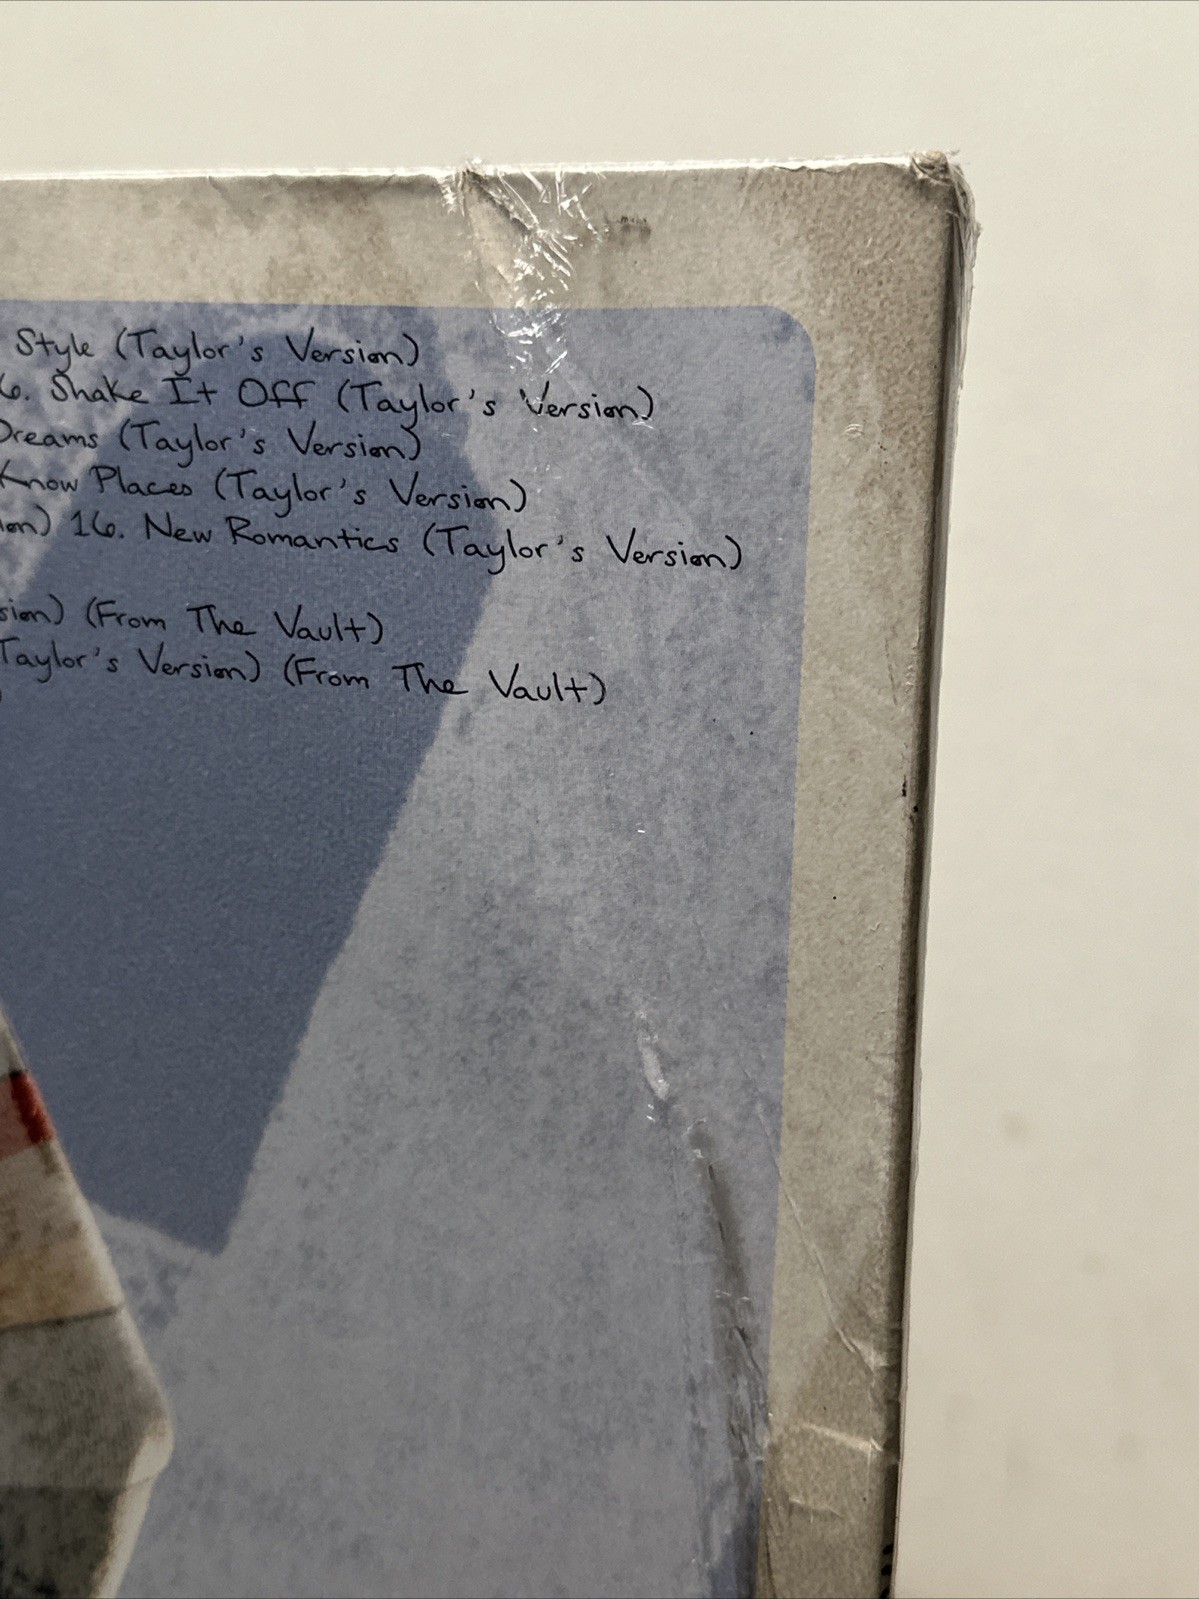 Style (Taylor's Version)
6. Shake It Off (Taylor's Version)
Dreams (Taylor's Version)
Know Places (Taylor's Version)
ion) 16. New Romantics (Taylor's Version)
sion) (From The Vault)
Taylor's Version) (From The Vault)